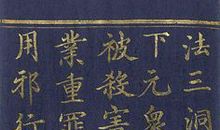 法三洞
下元衆
被殺害
業重罪
用邪行